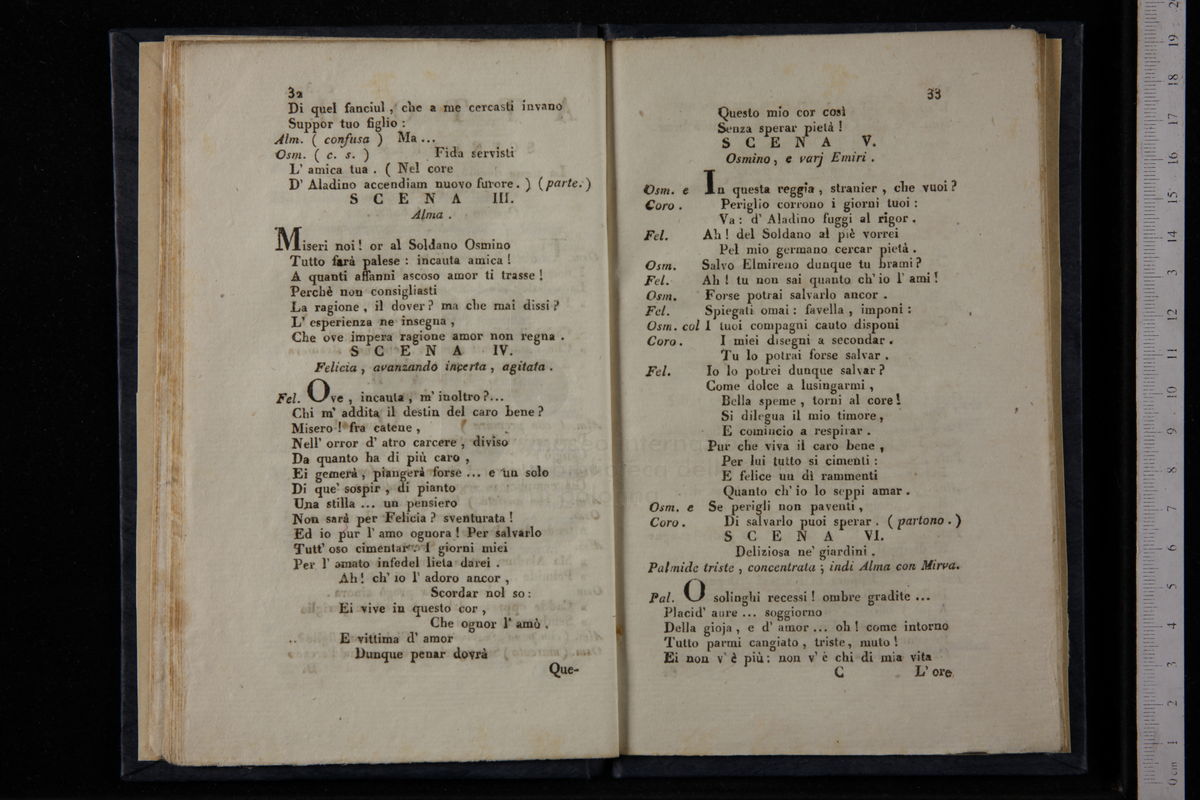 32
Di quel fanciul, che a me cercasti invano
Suppor tuo figlio :
Alm. ( confusa ) Ma ...
Osm. ( c. s. ) Fida servisti
L' amica tua . ( Nel core
D' Aladino accendiam nuovo furore. ) (parte.)
SCENA III.
Alma .
Miseri noi! or al Soldano Osmino
Tutto farà palese : incauta amica !
A quanti affanni ascoso amor ti trasse !
Perchè non consigliasti
La ragione , il dover? ma che mai dissi ?
L' esperienza ne insegna ,
Che ove impera ragione amor non regna .
SCENA IV.
Felicia , avanzando incerta , agitata .
Fel. Ove , incauta , m' inoltro ?...
Chi m' addita il destin del caro bene ?
Misero ! fra catene ,
Nell' orror d' atro carcere , diviso
Da quanto ha di più caro ,
Ei gemerà , piangerà forse ... e un solo
Di que' sospir , di pianto
Una stilla ... un pensiero
Non sarà per Felicia ? sventurata !
Ed io pur l' amo ognora ! Per salvarlo
Tutt' oso cimentar : I giorni miei
Per l' amato infedel lieta darei .
Ah! ch' io l' adoro ancor ,
Scordar nol so :
Ei vive in questo cor ,
Che ognor l' amò .
E vittima d' amor
Dunque penar dovrà
Que-
33
Questo mio cor così
Senza sperar pietà !
SCENA V.
Osmino, e varj Emiri .
Osm. e In questa reggia , stranier , che vuoi ?
Coro . Periglio corrono i giorni tuoi :
Va : d' Aladino fuggi al rigor .
Fel. Ah ! del Soldano al piè vorrei
Pel mio germano cercar pietà .
Osm. Salvo Elmireno dunque tu brami ?
Fel. Ah ! tu non sai quanto ch' io l' ami !
Osm. Forse potrai salvarlo ancor .
Fel. Spiegati omai : favella , imponi :
Osm. col I tuoi compagni cauto disponi
Coro . I miei disegni a secondar .
Tu lo potrai forse salvar .
Fel. Io lo potrei dunque salvar ?
Come dolce a lusingarmi ,
Bella speme , torni al core !
Si dilegua il mio timore ,
E comincio a respirar .
Pur che viva il caro bene ,
Per lui tutto si cimenti :
E felice un dì rammenti
Quanto ch' io lo seppi amar .
Osm. e Se perigli non paventi ,
Coro . Di salvarlo puoi sperar . ( partono . )
SCENA VI.
Deliziosa ne' giardini .
Palmide triste , concentrata ; indi Alma con Mirva.
Pal. O solinghi recessi ! ombre gradite ...
Placid' aure ... soggiorno
Della gioja , e d' amor ... oh ! come intorno
Tutto parmi cangiato , triste, muto !
Ei non v' è più : non v' è chi di mia vita
C L' ore